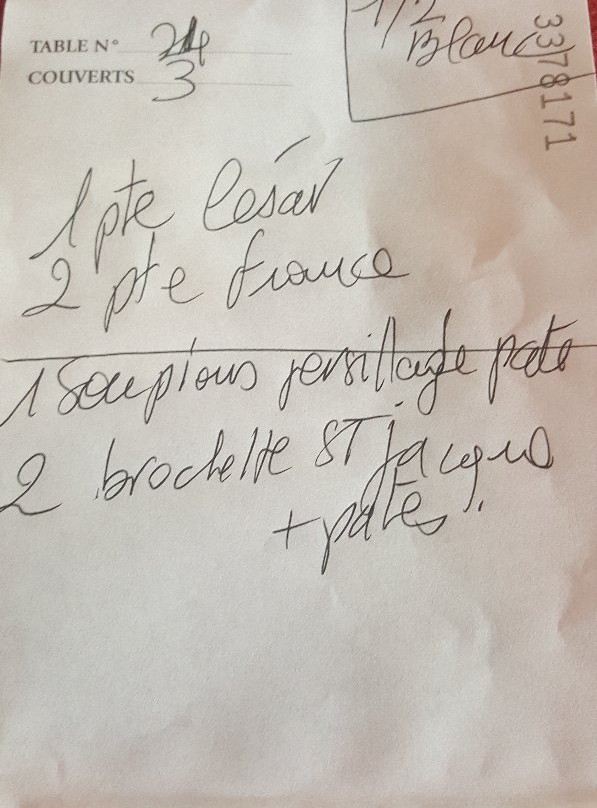 TABLE N° 24
COUVERTS 3
1/2
Blanc
3378171
1 pte César
2 pte france
1 Soupions persillade pate
2 brochette ST jacques
+ pates.